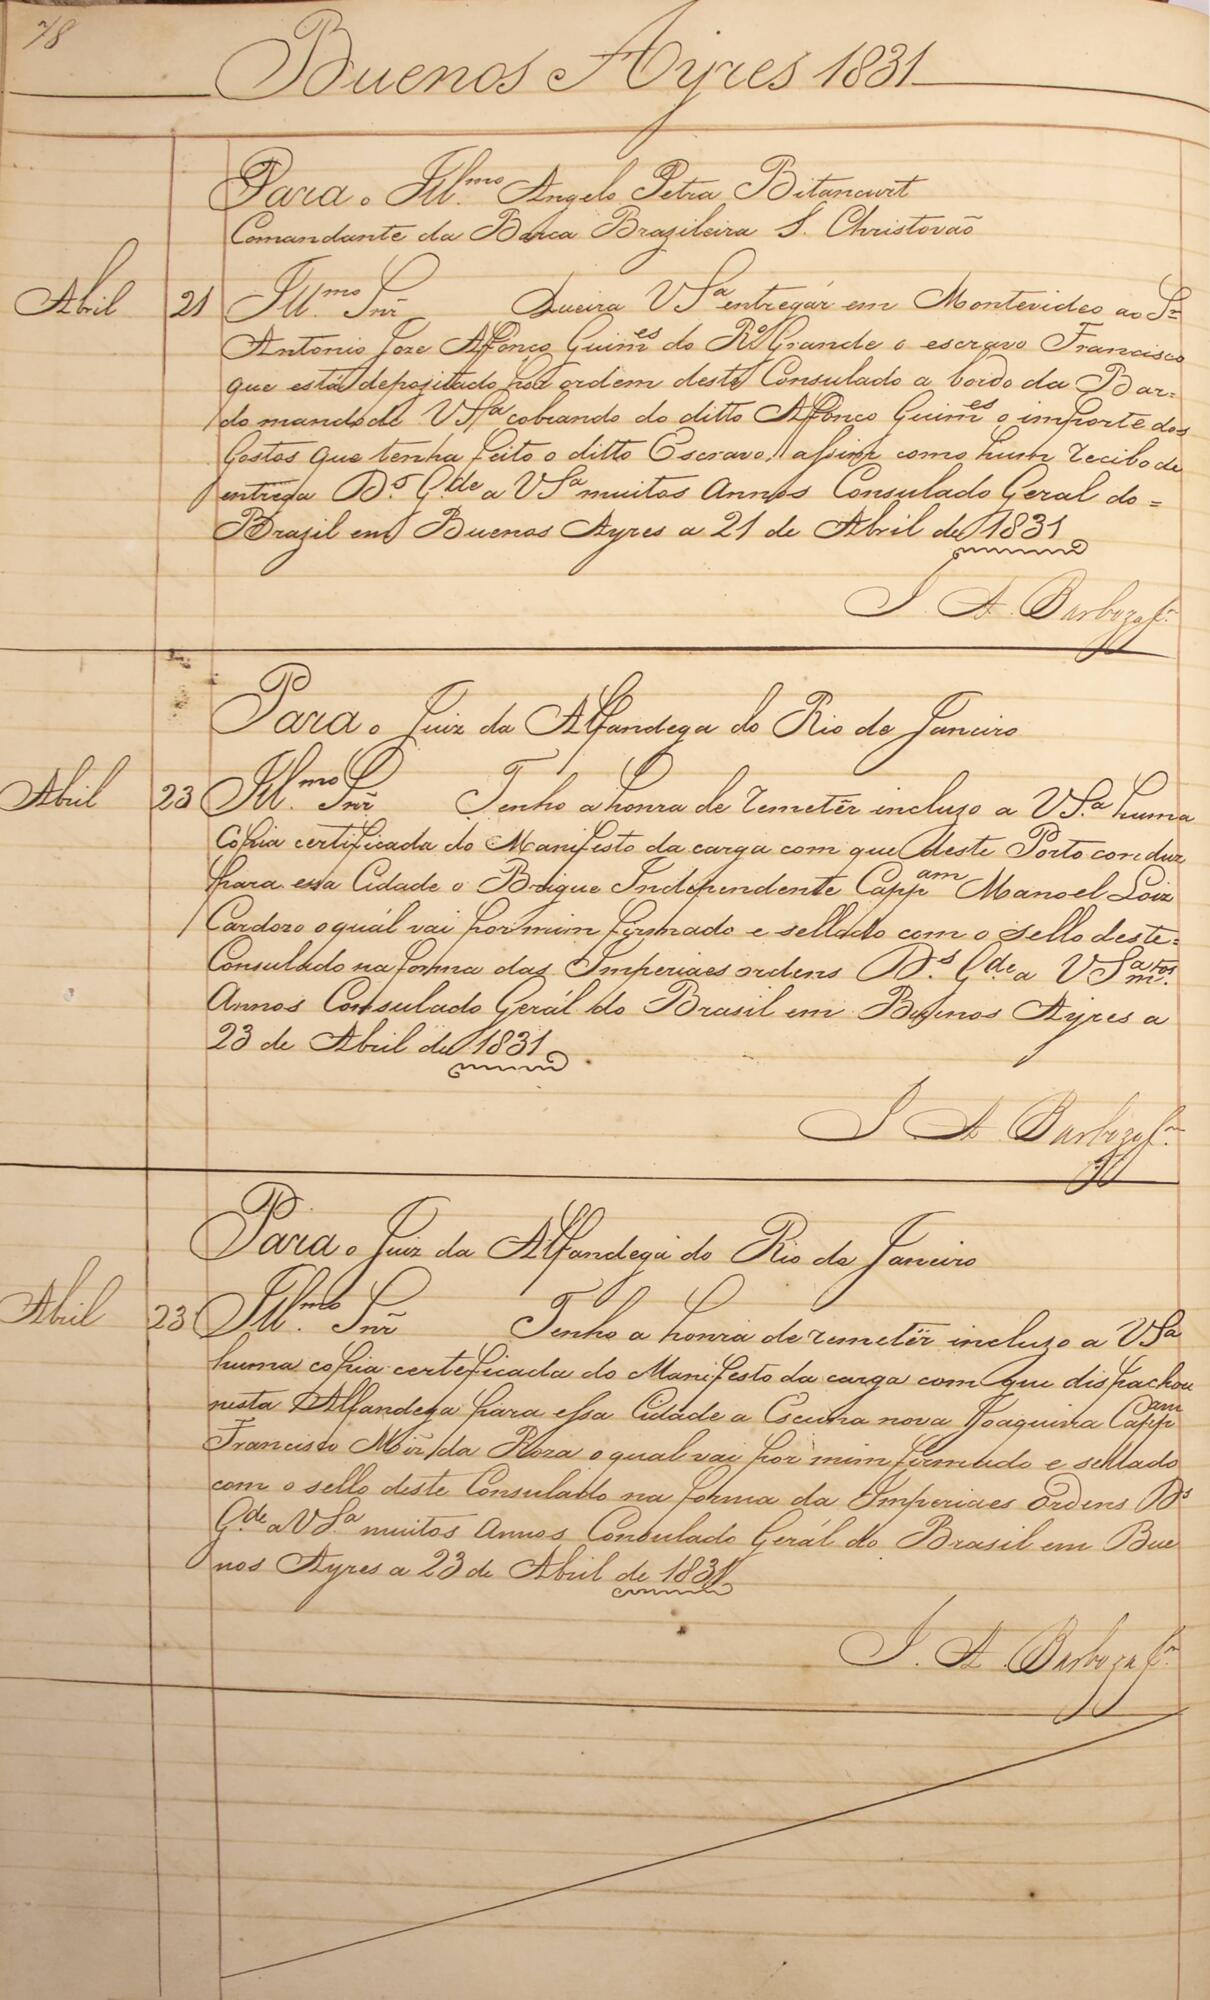 78
Buenos Ayres 1831
Para o Illmo. Angelo Petra Bitancurt
Comandante da Barca Brazileira S. Christovaõ
Abril 21 Illmo. Snr̃ Queira VSa entregár em Montevideo ao Sr
Antonio Joze Affonço Guimes do Ro Grande o escravo Francisco
que está depozitado por ordem deste Consulado a bordo da Bar-
do mando de VSa cobrando do ditto Affonço Guimes o importe dos
Gostos que tenha feito o ditto Escravo, assim como hum recibo de
entrega Ds. Gde a VSa muitos Annos Consulado Geral do =
Brazil em Buenos Ayres a 21 de Abril de 1831
J. A. Barboza Jr.
Para o Juiz da Alfandega do Rio de Janeiro
Abril 23 Illmo. Snr̃ Tenho a honra de remetêr incluzo a VS.a huma
Copia certificada do Manifesto da carga com que deste Porto conduz
para essa Cidade o Brigue Independente Cappam Manoel Loiz
Cardozo o quál vai por mim firmado e sellado com o sello deste =
Consulado na forma das Imperiaes ordens Ds. Gde a VSa mtos.
Annos Consulado Gerál do Brasil em Buenos Ayres a
23 de Abril de 1831
J A Barboza Jr.
Para o Juiz da Alfandega do Rio de Janeiro
Abril 23 Illmo. Snr̃ Tenho a honra de remetêr incluzo a VSa
huma copia certeficada do Manifesto da carga com que dispachou
nesta Alfandega para essa Cidade a Escuna nova Joaquina Cappam
Francisco Mir̃ da Roza o qual vai por mim firmado e sellado
com o sello deste Consulado na forma da Imperiaes Ordens Ds
G.de a VS.a muitos Annos Consulado Gerál do Brasil em Bue
nos Ayres a 23 de Abril de 1831
J. A. Barboza Jr.